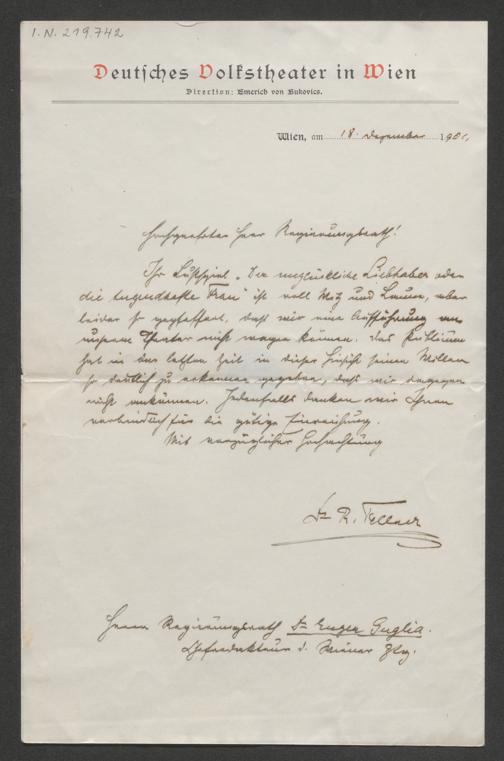 I. N. 219.742
Deutsches Volkstheater in Wien
Direction: Emerich von Bukovics.
Wien, am 18. Dezember 1901.
Hochgeehrter Herr Regierungsrath!
Ihr Lustspiel „Der unglückliche Liebhaber oder
die tugendhafte Frau" ist voll Witz und Laune, aber
leider so daß wir eine Aufführung an
unserem Theater nicht wagen können. Das Publicum
hat in der letzten Zeit in dieser Hinsicht seinen Willen
so deutlich zu erkennen gegeben, daß wir dagegen
nicht ankönnen. Jedenfalls danken wir Ihnen
verbindlichst für die gütige Einreichung.
Mit vorzüglicher Hochachtung
Dr R. Fellner
Herrn Regierungsrath Dr Eugen Guglia.
Chefredakteur d. Wiener Ztg.